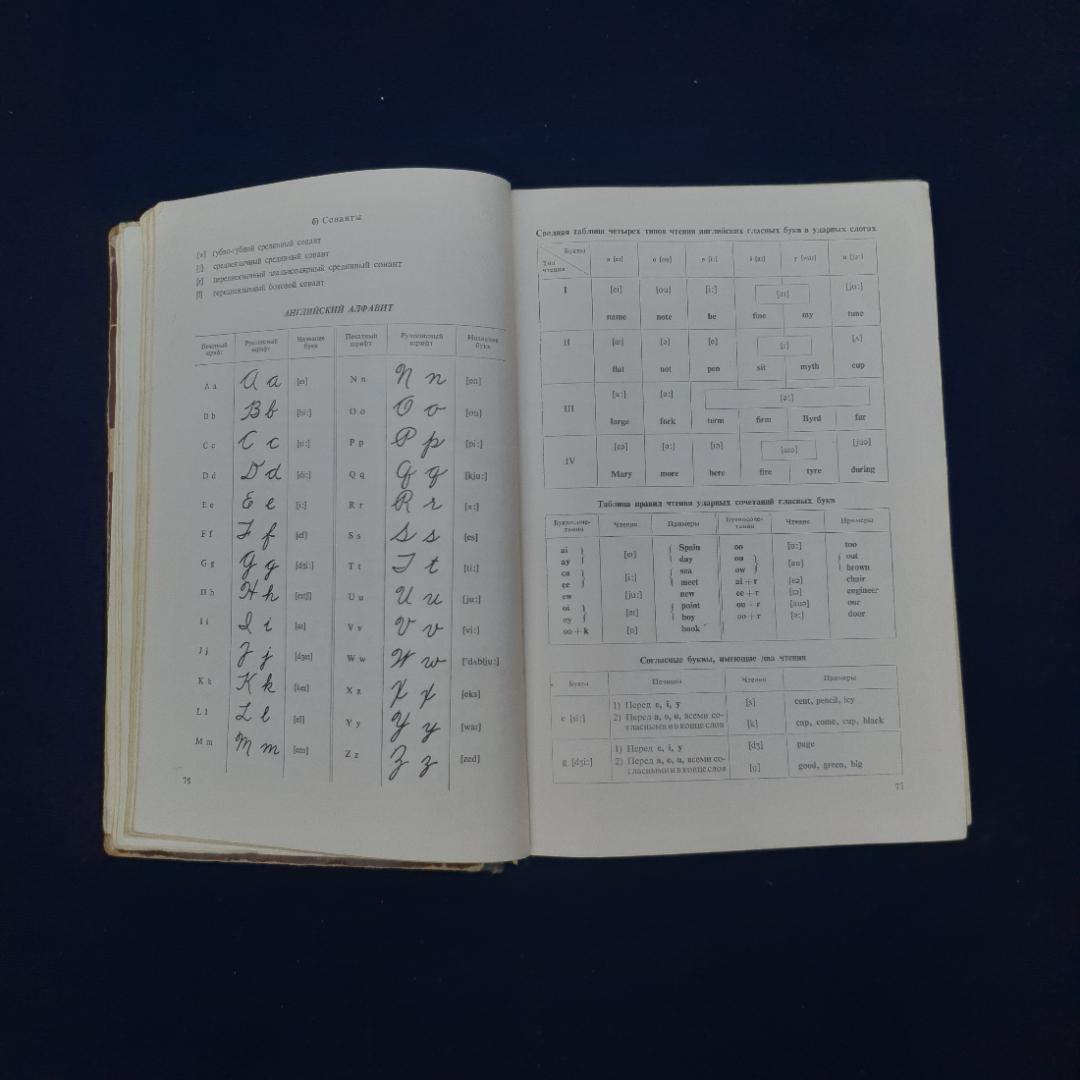 б) Сонанты
[w] губно-губной срединный сонант
[j] среднеязычный срединный сонант
[r] переднеязычный заальвеолярный срединный сонант
[l] переднеязычный боковой сонант
АНГЛИЙСКИЙ АЛФАВИТ
Печатный шрифт Рукописный шрифт Название букв Печатный шрифт Рукописный шрифт Название букв
A a A a [eɪ] N n N n [en]
B b B b [bi:] O o O o [ou]
C c C c [si:] P p P p [pi:]
D d D d [di:] Q q Q q [kju:]
E e E e [i:] R r R r [ɑ:]
F f F f [ef] S s S s [es]
G g G g [dʒi:] T t T t [ti:]
H h H h [eɪtʃ] U u U u [ju:]
I i I i [aɪ] V v V v [vi:]
J j J j [dʒeɪ] W w W w ['dʌblju:]
K k K k [keɪ] X x X x [eks]
L l L l [el] Y y Y y [waɪ]
M m M m [em] Z z Z z [zed]
Сводная таблица четырех типов чтения английских гласных букв в ударных слогах
Буквы
Тип чтения a [eɪ] o [ou] e [i:] i [aɪ] y [waɪ] u [ju:]
I [eɪ] [ou] [i:] [aɪ] [ju:]
name note be fine my tune
II [æ] [ɔ] [e] [ɪ] [ʌ]
flat not pen sit myth cup
III [ɑ:] [ɔ:] [ə:]
large fork term firm Byrd fur
IV [ɛə] [ɔ:] [ɪə] [aɪə] [juə]
Mary more here fire tyre during
Таблица правил чтения ударных сочетаний гласных букв
Буквосочетания Чтение Примеры Буквосочетания Чтение Примеры
ai Spain oo [u:] too
ay [eɪ] day ou out
ea sea ow [au] brown
ee [i:] meet ai + r [ɛə] chair
ew [ju:] new ee + r [ɪə] engineer
oi point ou + r [auə] our
oy [ɔɪ] boy oo + r [ɔ:] door
oo + k [u] book
Согласные буквы, имеющие два чтения
Буквы Позиция Чтение Примеры
c [si:] 1) Перед e, i, y [s] cent, pencil, icy
2) Перед a, o, u, всеми со-
гласными и в конце слов [k] cap, come, cup, black
g [dʒi:] 1) Перед e, i, y [dʒ] page
2) Перед a, o, u, всеми со-
гласными и в конце слов [g] good, green, big
77